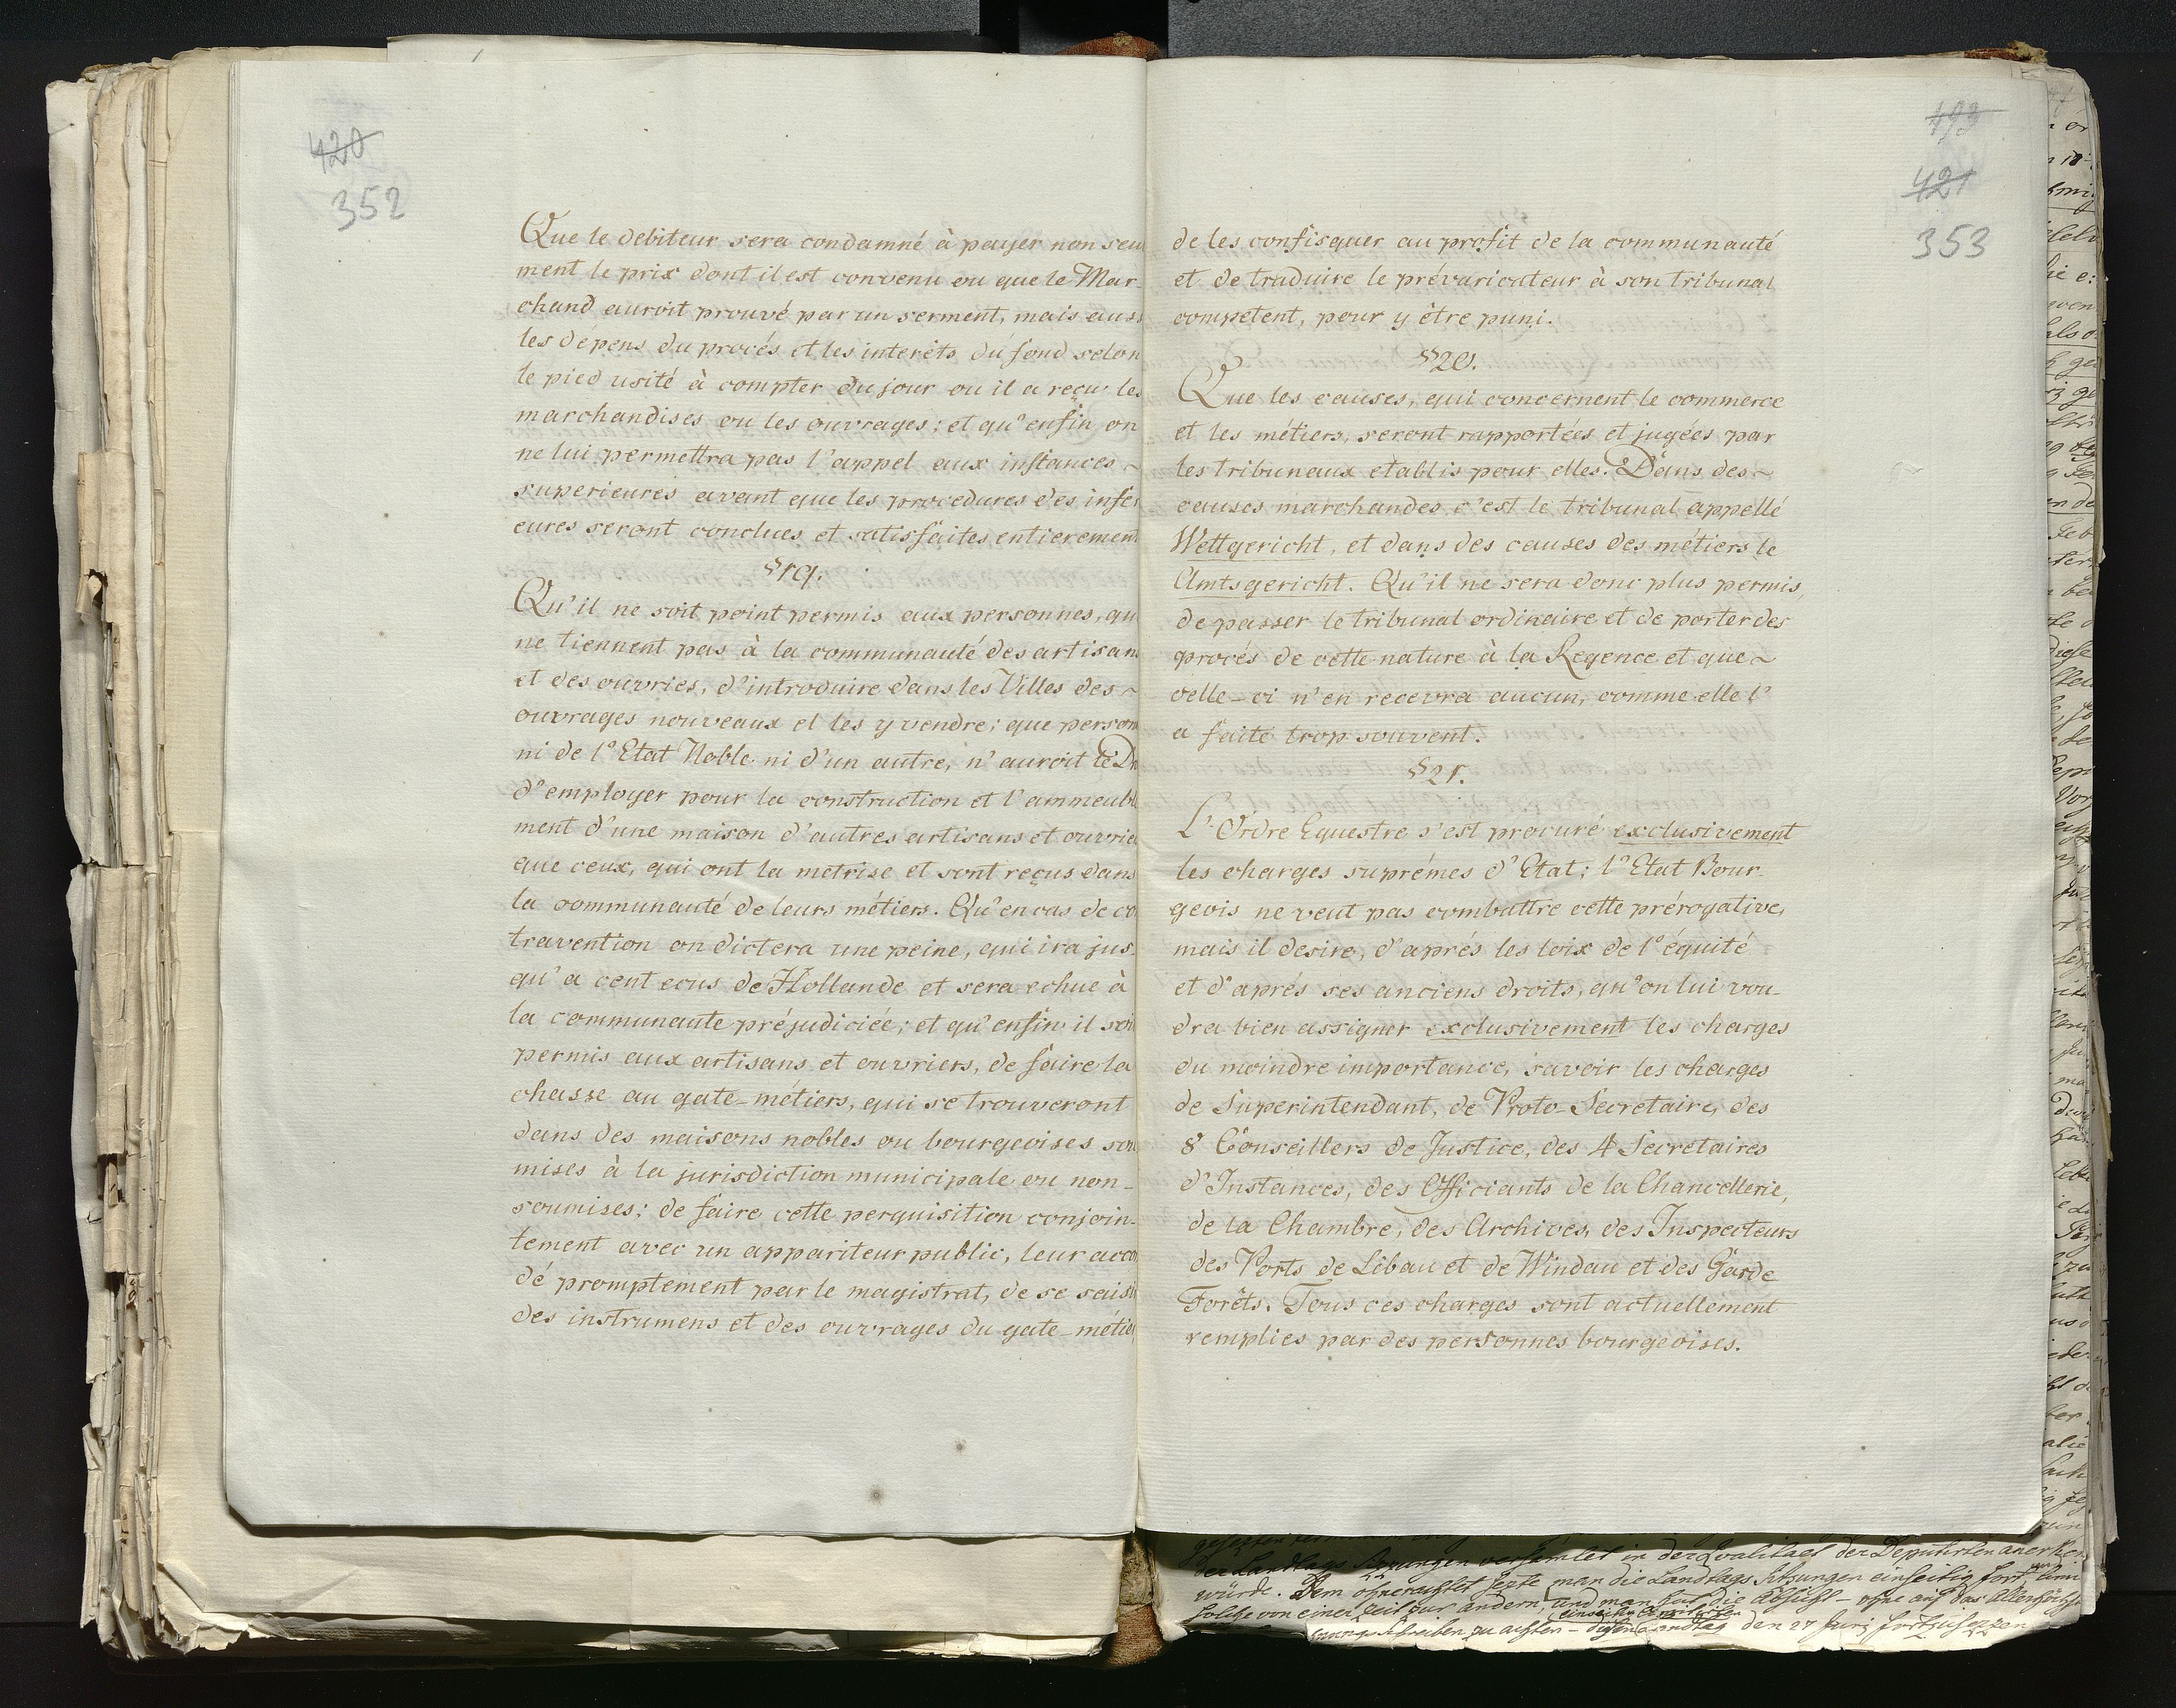 420
352
Que le debiteur sera condamné à payer non seu
ment le prix dont il est convenu ou que le Mar-
chand auroit prouvé par un serment, mais auss
les dépens du procés et les interêts du fond selon
le pied usité à compter du jour ou il a reçu les
marchandises ou les ouvrages; et qu'enfin on
ne lui permettra pas l'appel aux instances ~
superieures avant que les procedures des infer
eures seront conclues et satisfaites entierement
§19.
Qu'il ne soit point permis aux personnes, qu
ne tiennent pas à la communauté des artisans
et des ouvries, d'introduire dans les Villes des ~
ouvrages nouveaux et les y vendre; que person
ni de l'Etat Noble ni d'un autre, n'auroit le Dr
d'employer pour la construction et l'ammeuble
ment d'une maison d'autres artisans et ouvrie
que ceux, qui ont la metrise et sont reçus dans
la communauté de leurs métiers. Qu'en cas de co
travention on dictera une peine, qui ira jus-
qu'a cent ecus de Hollande et sera echue à
la communaute préjudiciée; et qu'enfin il soi
permis aux artisans et ouvriers, de faire la
chasse au gate-métiers, qui se trouveront
dans des maisons nobles ou bourgeoises sou
mises à la jurisdiction municipale ou non-
soumises; de faire cette perquisition conjoin-
tement avec un appariteur public, leur acco
dé promptement par le magistrat, de se saisi
des instrumens et des ouvrages du gate-métie
493
421
353
de les confisquer au profit de la communauté
et de traduire le prévaricateur à son tribunal
competent, pour y être puni.
§20.
Que les causes, qui concernent le commerce
et les métiers, seront rapportées et jugées par
les tribuneaux etablis pour elles. Dans des ~
causes marchandes c'est le tribunal appellé
Wettgericht, et dans des causes des métiers le
Amtsgericht. Qu'il ne sera donc plus permis,
de passer le tribunal ordinaire et de porter des
procés de cette nature à la Regence et que ~
celle-ci n'en recevra aucun, comme elle l'
a faite trop souvent.
§21.
L'Ordre Equestre s'est procuré exclusivement
les charges suprémes d'Etat; l'Etat Bour-
geois ne veut pas combattre cette prérogative,
mais il desire, d'aprés les loix de l'équité
et d'aprés ses anciens droits, qu'on lui vou-
dra bien assigner exclusivement les charges
du moindre importance, savoir les charges
de Superintendant, de Proto-Secretaire, des
8 Conseillers de Justice, des 4 Secretaires
d'Instances, des Officiants de la Chancellerie,
de la Chambre, des Archives, des Inspecteurs
des Ports de Libau et de Windau et des Garde
Forêts. Tous ces charges sont actuellement
remplies par des personnes bourgeoises.
der Landtags Sitzungen versamlet in der Qualitaet der Deputirten anerken
würde. Dem ohnerachtet sezte man die Landtags Sitzungen einseitig fort
solche von einer Zeit zur andern, und man hat die Absicht – ohne auf das Allerhöchst
schreiben zu achten – diesen Landtag den 27 Juny fortzusezzen